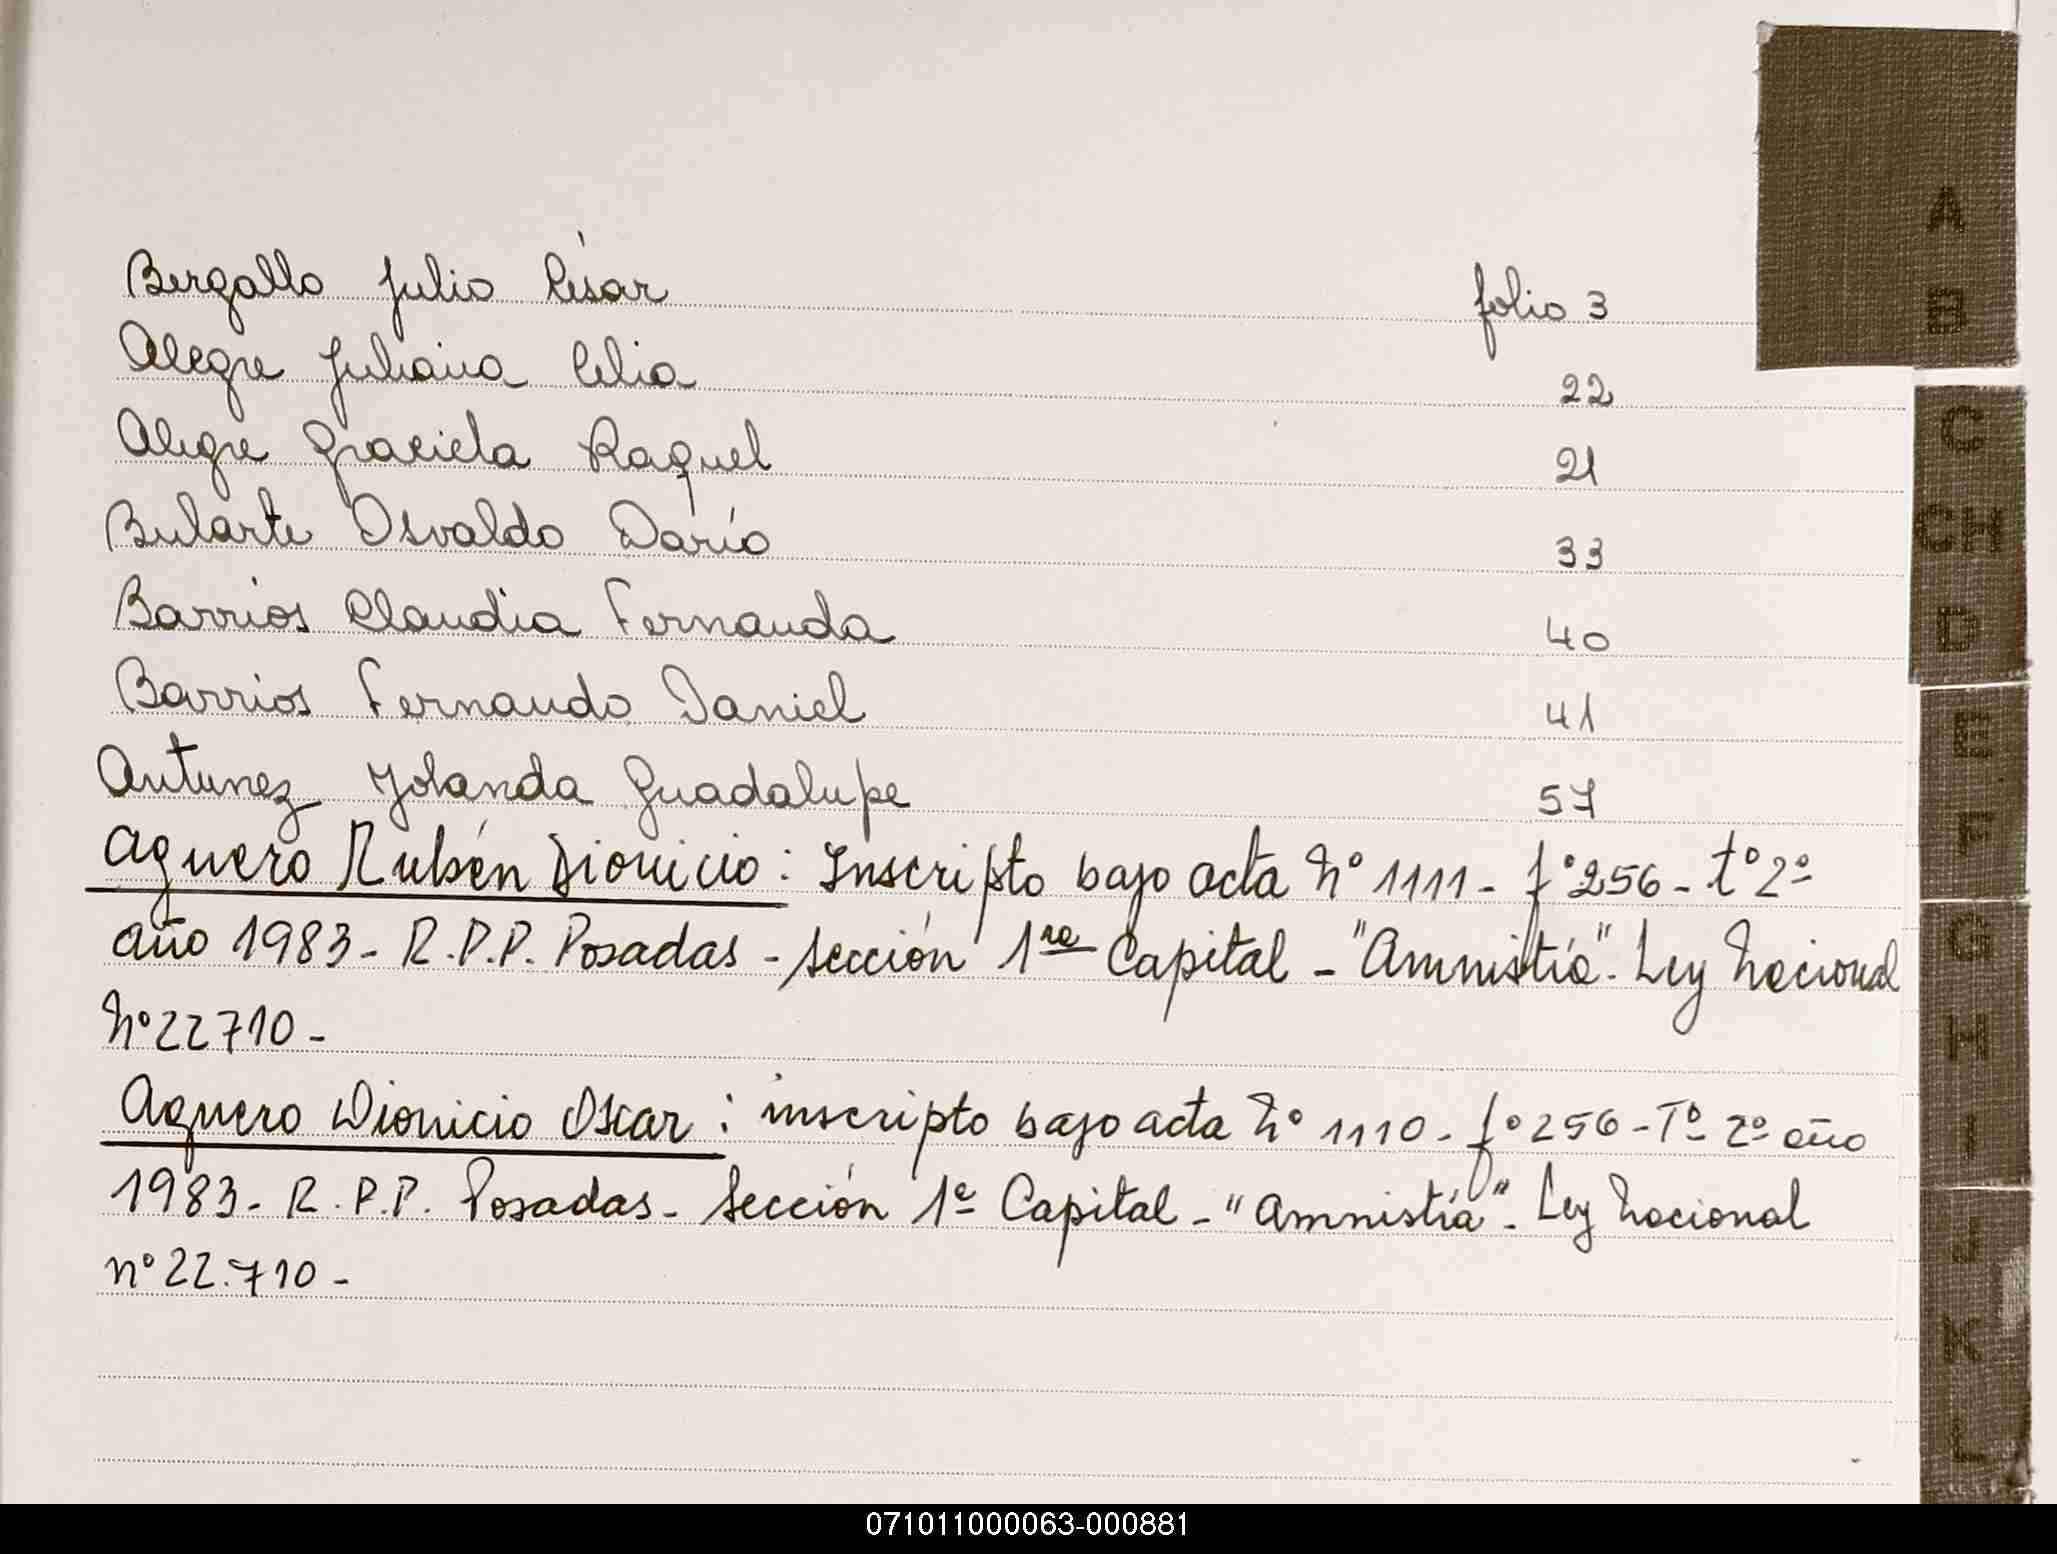 Bergallo Julio César folio 3
Alegre Juliana Celia 22
Alegre Graciela Raquel 21
Bularte Osvaldo Darío 33
Barrios Claudia Fernanda 40
Barrios Fernando Daniel 41
Antunez Yolanda Guadalupe 57
Aguero Rubén Dionicio: Inscripto bajo acta Nº 1111 - fº 256 - tº 2º
año 1983 - R.P.P. Posadas - Sección 1ra Capital - "Amnistía". Ley Nacional
Nº 22710 -
Aguero Dionicio Oscar: inscripto bajo acta Nº 1110 - fº 256 - Tº 2º año
1983 - R.P.P. Posadas - Sección 1ª Capital - "Amnistía" - Ley Nacional
nº 22.710 -
A
B
C
CH
D
E
F
G
H
I
J
K
L
071011000063-000881